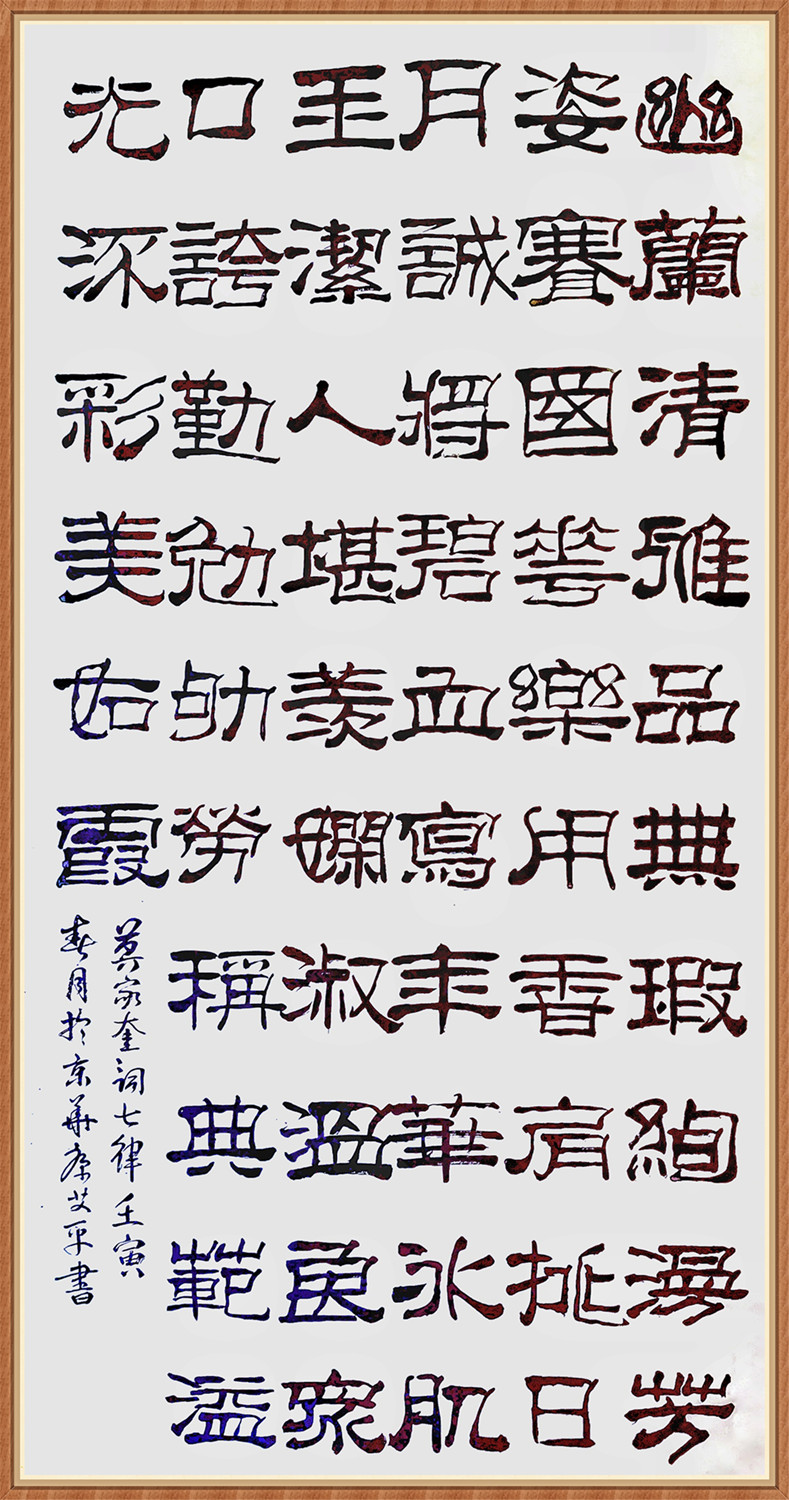 幽蘭清雅品無瑕絢漫芳
姿賽國花樂用香肩挑日
月誠將碧血寫年華冰肌
玉潔人堪羨嫻淑溫良眾
口誇勤勉劬勞稱典範溢
光流彩美如霞
莫家奎詞七律壬寅
春月於京華艾平書